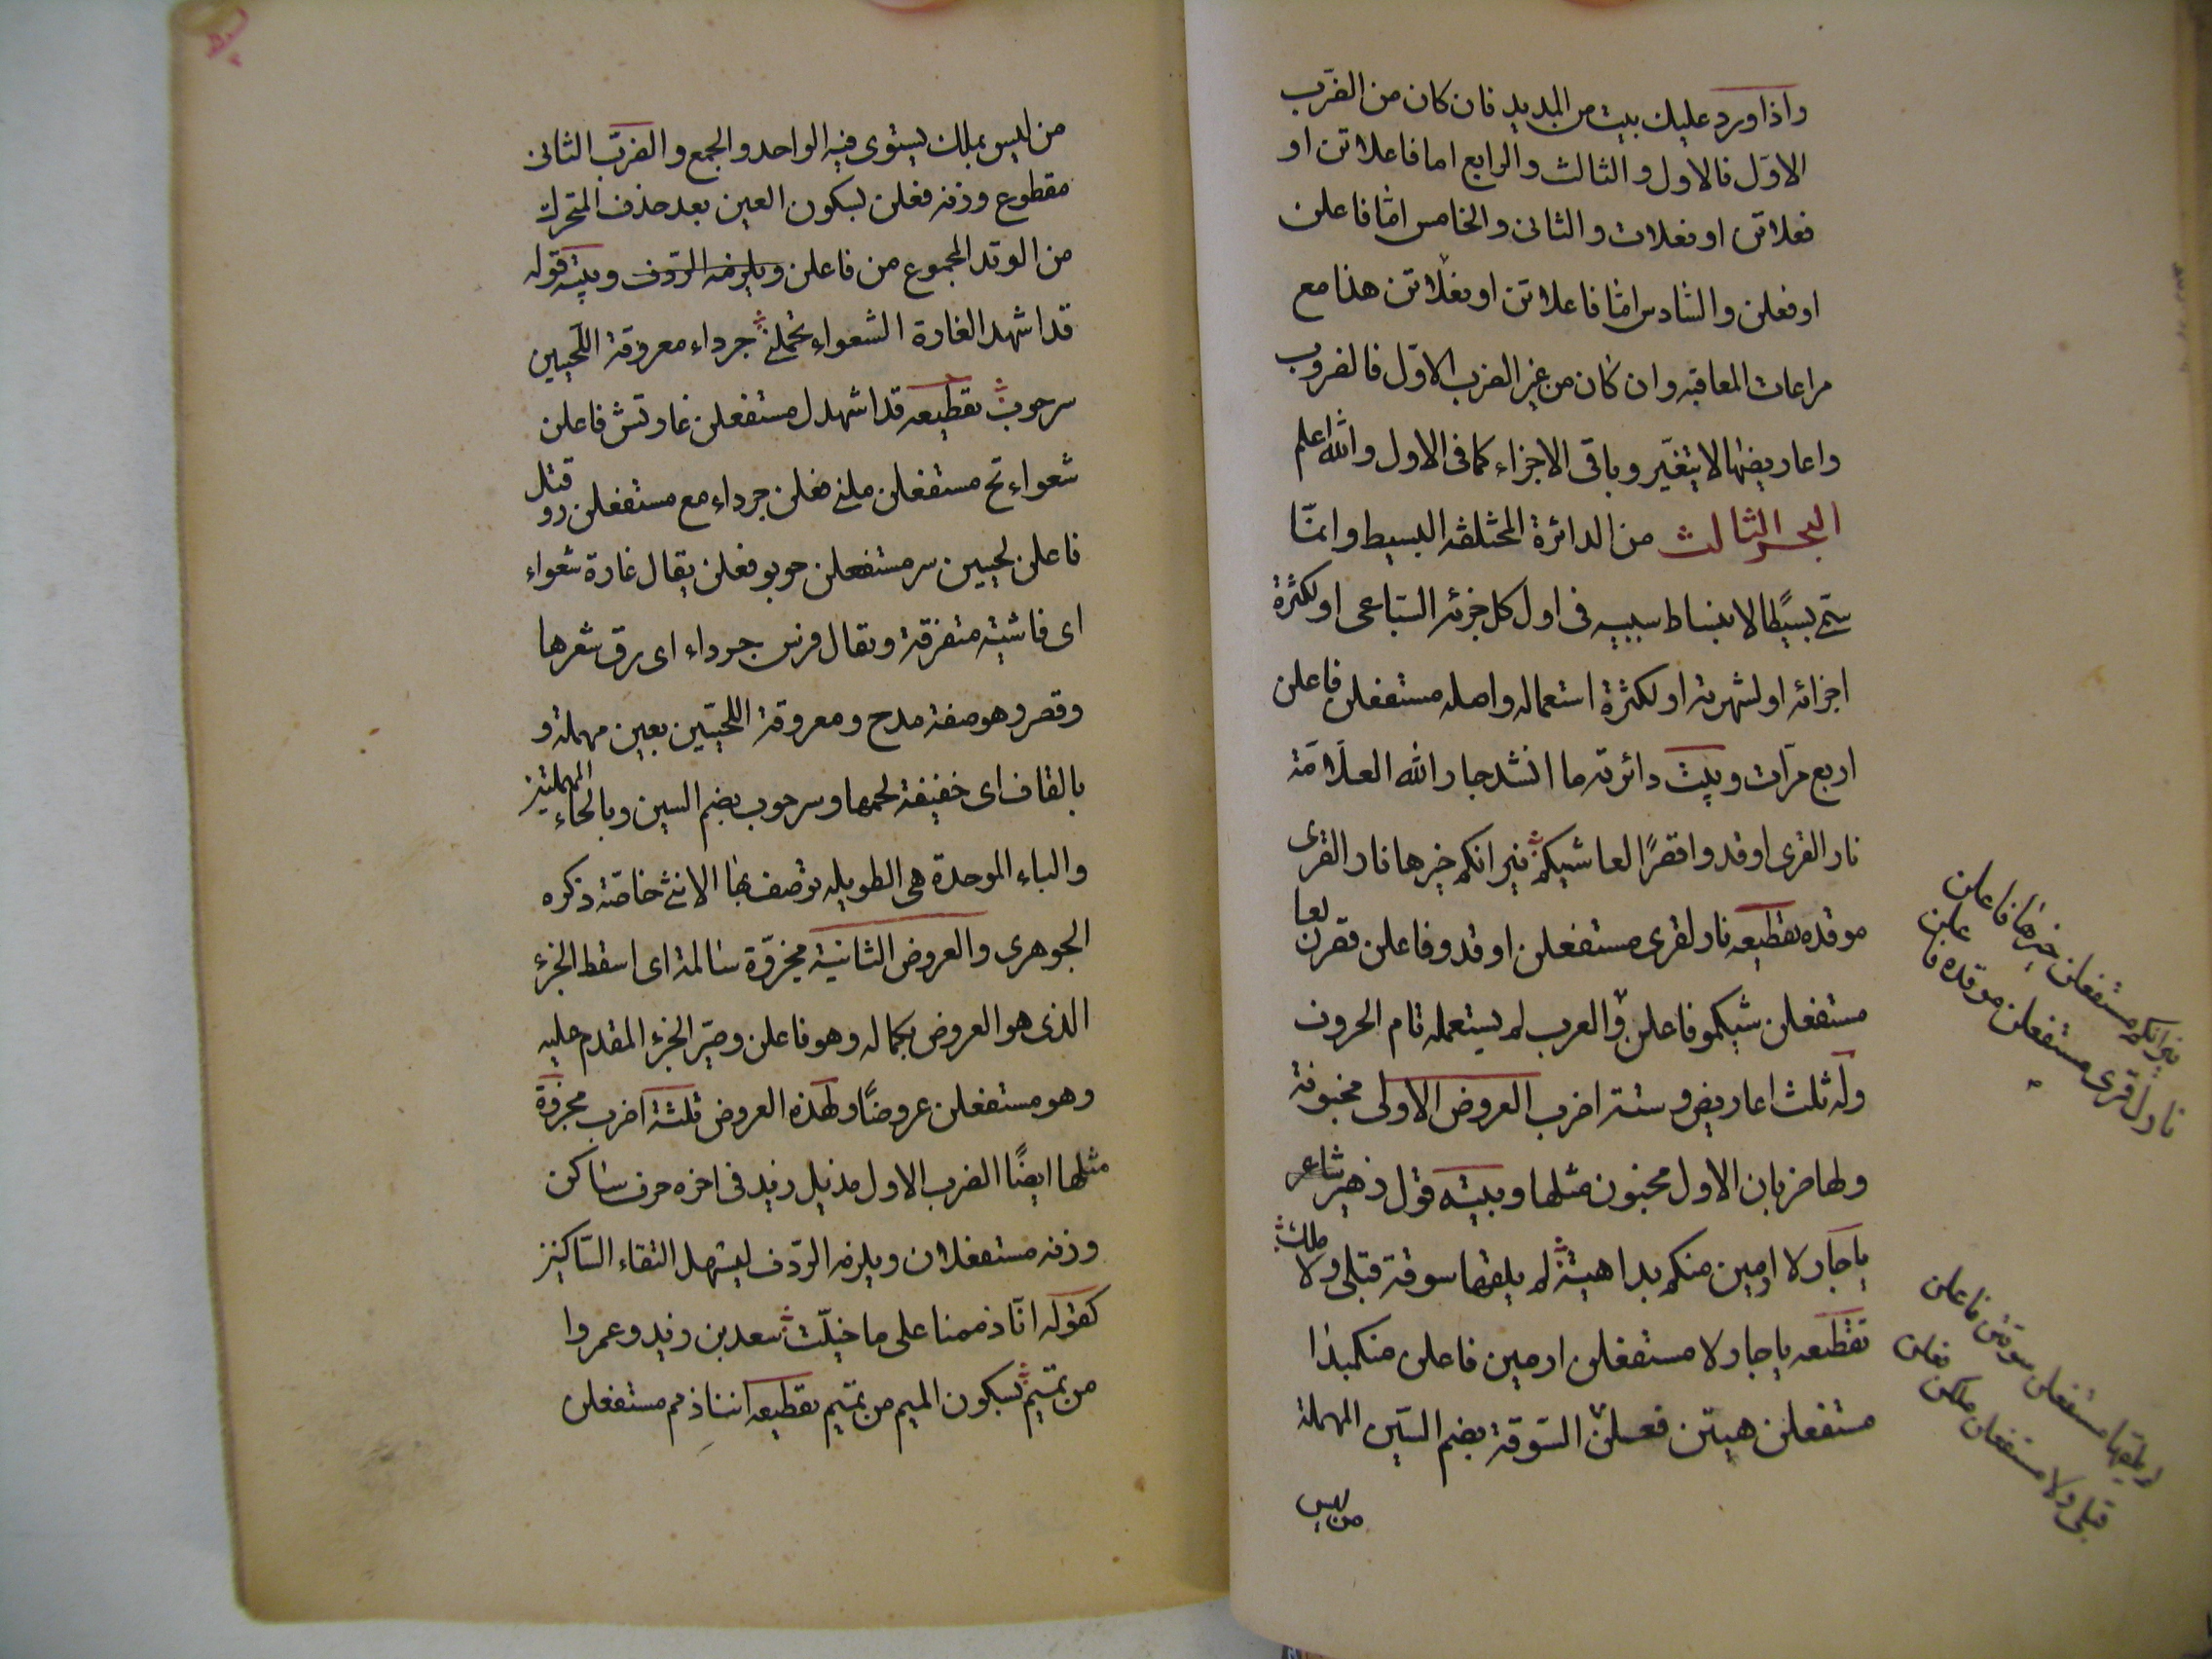 واذا ورد عليك بيت من المديد فان كان من الضرب
الاوّل فالاول والثالث والرابع اما فاعلاتن او
فعلاتن او فعلات والثانى والخامس امّا فاعلن
او فعلن والسّادس امّا فاعلاتن او فعلاتن هذا مع
مراعات المعاقبه وان كان من غير الضرب الاوّل فالضروب
واعاريضها لا يتغيّر وباقى الاجزاء كما فى الاول والله اعلم
البحر الثالث من الدائرة المختلفه البسيط وانمّا
سمّى بسيطًا لانبساط سببيه فى اول كل جزئه السّباعى او لكثرة
اجزائه او لشهرته او لكثرة استعماله واصله مستفعلن فاعلن
اربع مرّات وبيت دائرته ما انشد جار الله العلّامّة
نار القرى اوقدوا فقرًا لعاشيكم نيرانكم خيرها نار القرى
موقده تقطيعه نار لقرى مستفعلن اوقدو فاعلن فقرن لعا
مستفعلن شيكمو فاعلن والعرب لم يستعمله تام الحروف
وله ثلث اعاريض وستة اضرب العروض الاولى مخبونة
ولها ضربان الاول مخبون مثلها وبيته قول زهير شاعر
يا حار لا ارمين منكم بداهية لم يلقها سوقة قبلى ولا ملك
تقطيعه يا حار لا مستفعلن ارمين فاعلن منكمبدا
مستفعلن هيتن فعلن السّوقة بضم السّين المهملة
من ليس
نيرانكم مستفعلن خيرها فاعلن
نار لقرى مستفعلن موقده فاعلن
لم يلقها مستفعلن سوقتن فاعلن
قبلى ولا مستفعلن ملكن فعلن
من ليس بملك يستوى فيه الواحد والجمع والضرب الثانى
مقطوع وزنه فعلن بسكون العين بعد حذف المتحرك
من الوتد المجموع من فاعلن ويلزمه الردف وبيته قوله
قد اشهد الغارة الشعواء تحملنى جرداء معروقة اللّحيين
سرحوب تقطيعه قد اشهدل مستفعلن غارتش فاعلن
شعواء تح مستفعلن ملنى فعلن جرداء مع مستفعلن روقتل
فاعلن لحيين سر مستفعلن حوبو فعلن يقال غارة شعواء
اى فاشية متفرقة ويقال فرس جرداء اى رق شعرها
وقصر وهو صفة مدح ومعروقة اللّحيّين بعين مهملة و
بالقاف اى خفيفة لحمها وسرحوب بضم السين وبالحاء المهملتين
والباء الموحدة هى الطويله توصف بها الانثى خاصّة ذكره
الجوهرى والعروض الثانية مجزوّة سالمة اى اسقط الجزء
الذى هو العروض بكماله وهو فاعلن وصيّر الجزء المقدم عليه
وهو مستفعلن عروضًا ولهذه العروض ثلثة اضرب مجزوة
مثلها ايضًا الضرب الاول مذيل زيد فى اخره حرف ساكن
وزنه مستفعلان ويلزمه الرّدف ليسهل التقاء السّاكنين
كقوله انّا ذممنا على ما خيلّت سعد بن زيد وعمروا
من تميم بسكون الميم من تميم تقطيعه انناذمم مستفعلن